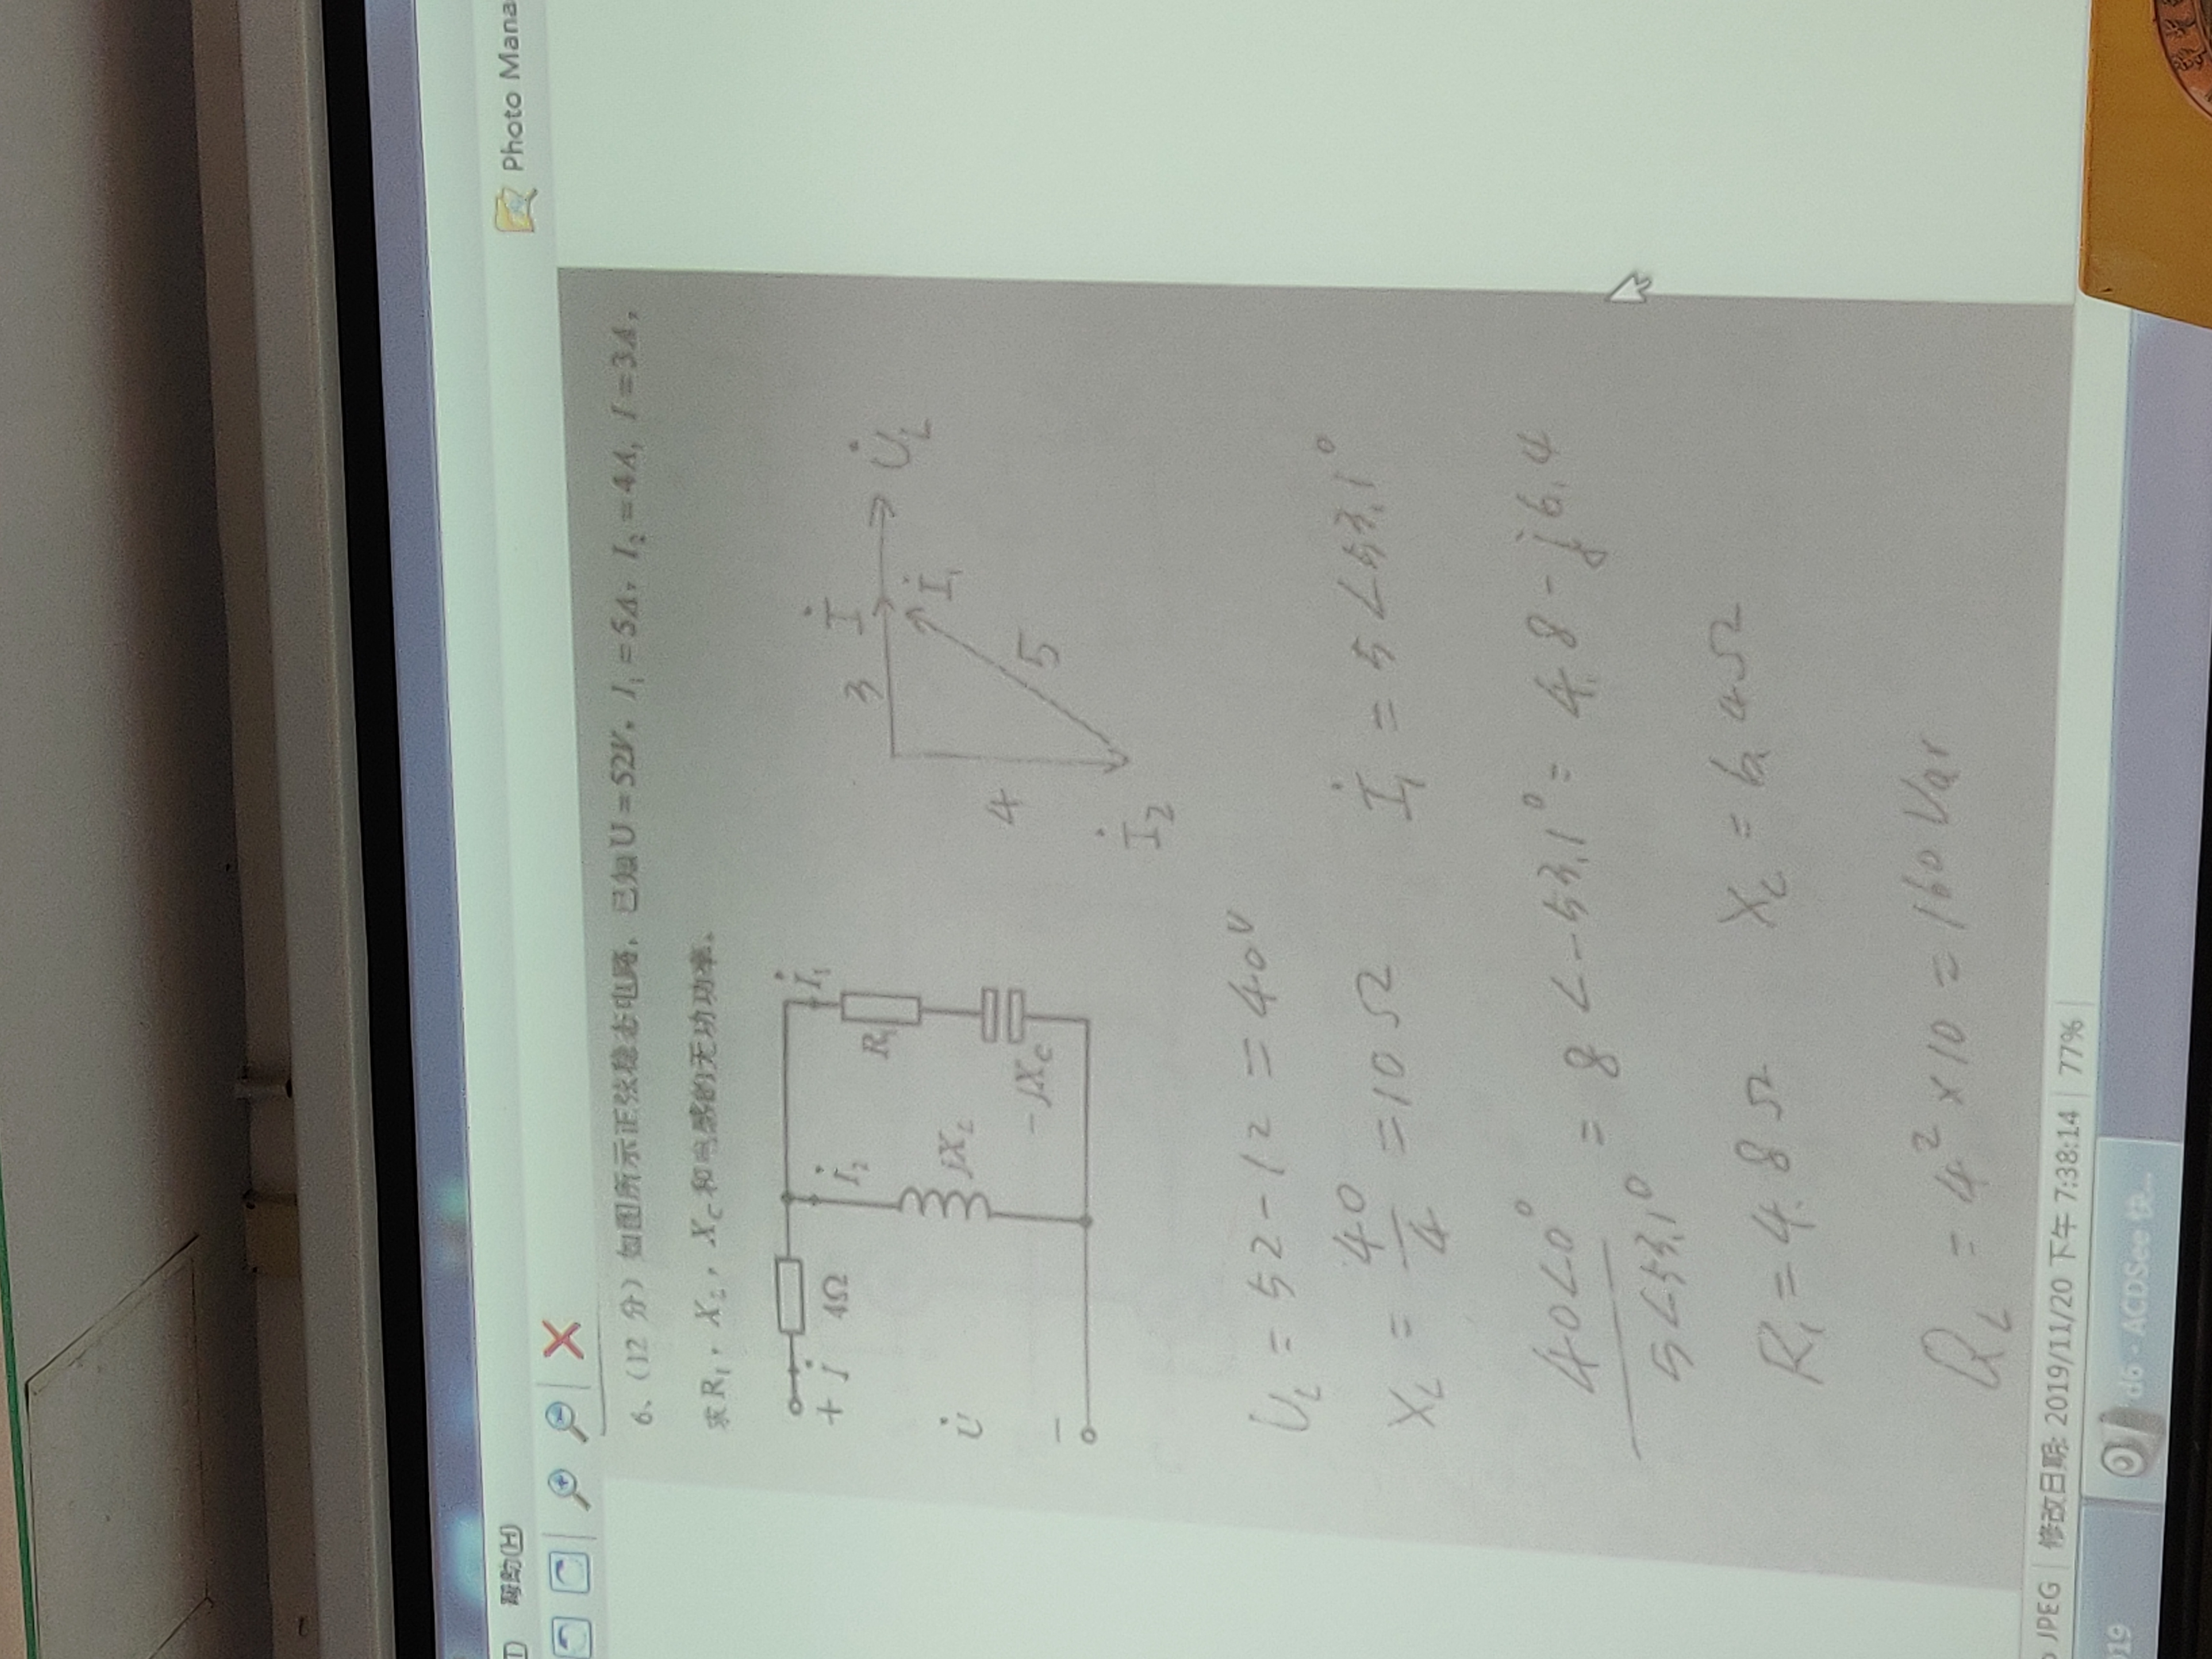 帮助(H)
Photo Mana
6、(12 分) 如图所示正弦稳态电路，已知 U = 52V，I₁ = 5A，I₂ = 4A, I = 3A，
求 R₁，X_L，X_C 和电感的无功功率。
+ İ 4Ω İ₂ İ₁
R₁
U̇ jX_L
-jX_C
−
3 İ U̇_L
İ₁
4 5
İ₂
U_L = 52 - 12 = 40V
X_L = 40/4 = 10 Ω İ₁ = 5∠53.1°
40∠0° / 5∠53.1° = 8∠-53.1° = 4.8 - j6.4
R₁ = 4.8 Ω X_C = 6.4Ω
Q_L = 4² × 10 = 160 Var
JPEG 修改日期: 2019/11/20 下午 7:38:14 77%
019 d6 - ACDSee 快...